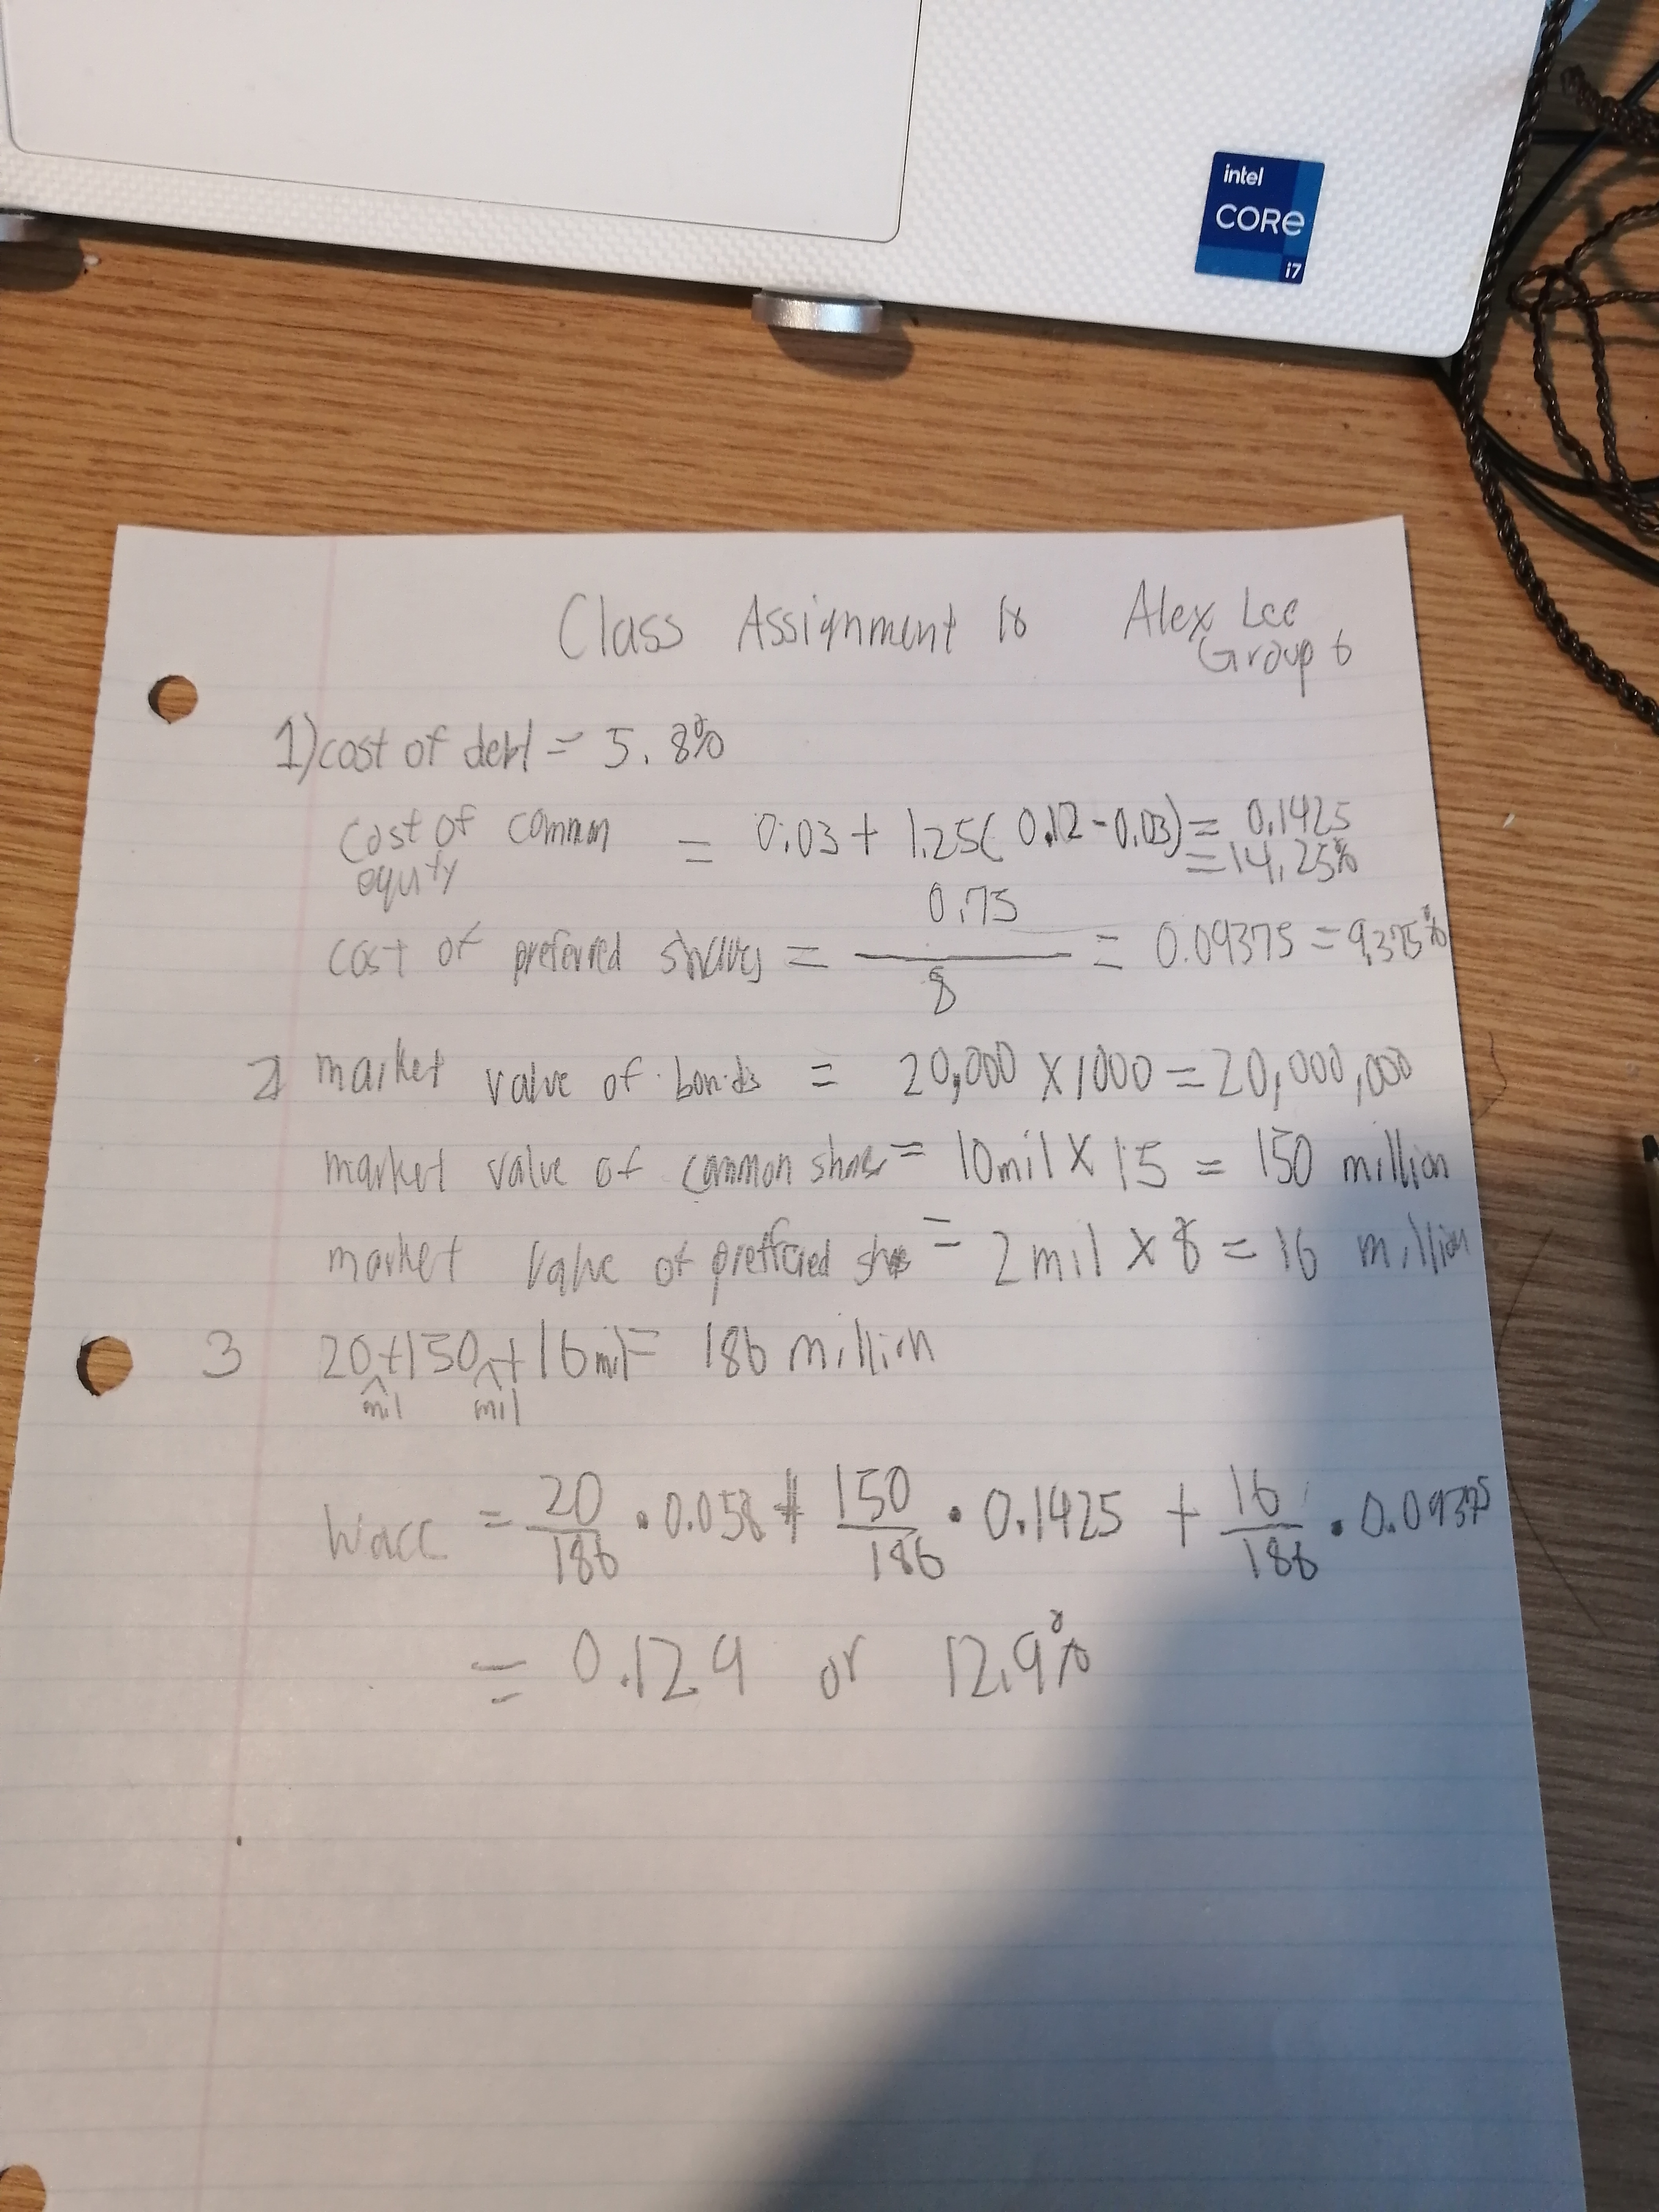 intel
CORe
i7
Class Assignment 18 Alex Lee
Group 6
1) cost of debt = 5.8%
cost of common equity = 0.03 + 1.25(0.12 - 0.03) = 0.1425
= 14.25%
cost of preferred shares = 0.75 / 8 = 0.09375 = 9.375%
2 market value of bonds = 20,000 x 1000 = 20,000,000
market value of common shares = 10mil x 15 = 150 million
market value of preferred = 2 mil x 8 = 16 million
3 20 mil + 150 mil + 16 mil = 186 million
Wacc = 20/186 • 0.058 + 150/186 • 0.1425 + 16/186 • 0.09375
= 0.129 or 12.9%